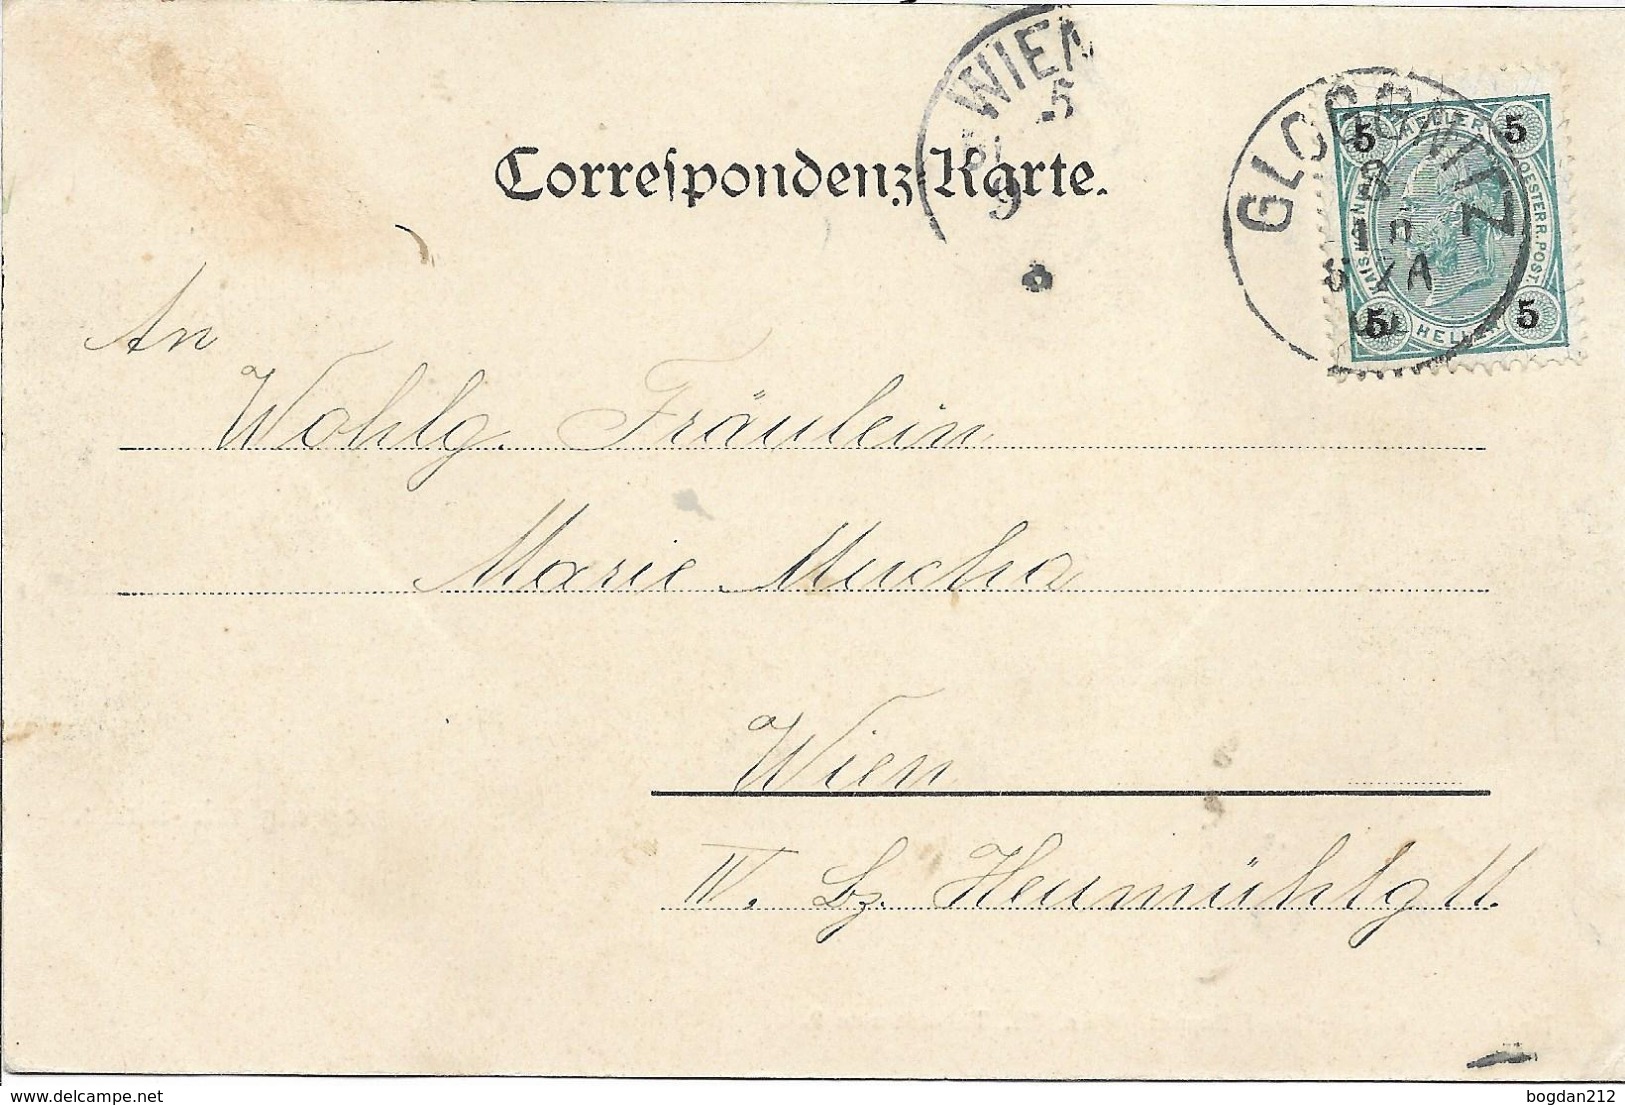 WIEN
5
9
Correſpondenz-Karte.
GLOGGNITZ
8
5
5
HELLER
OESTERR. POST.
5
HELLER
5
An
Wohlg. Fräulein
Marie Mucha
Wien
IV. Bz. Heumühlg 11.
delcampe.net
bogdan212